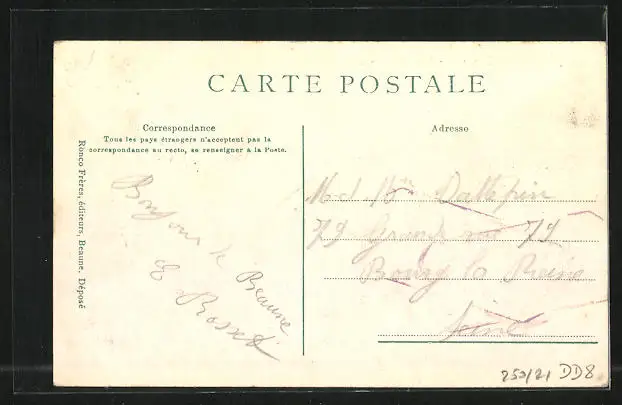 CARTE POSTALE
Correspondance
Tous les pays étrangers n'acceptent pas la
correspondance au recto, se renseigner à la Poste.
Adresse
Ronco Frères, éditeurs, Beaune. Déposé
Bonjour de Beaune
79 Grande rue 79
Bourg la Reine
Seine
253/21 DD8